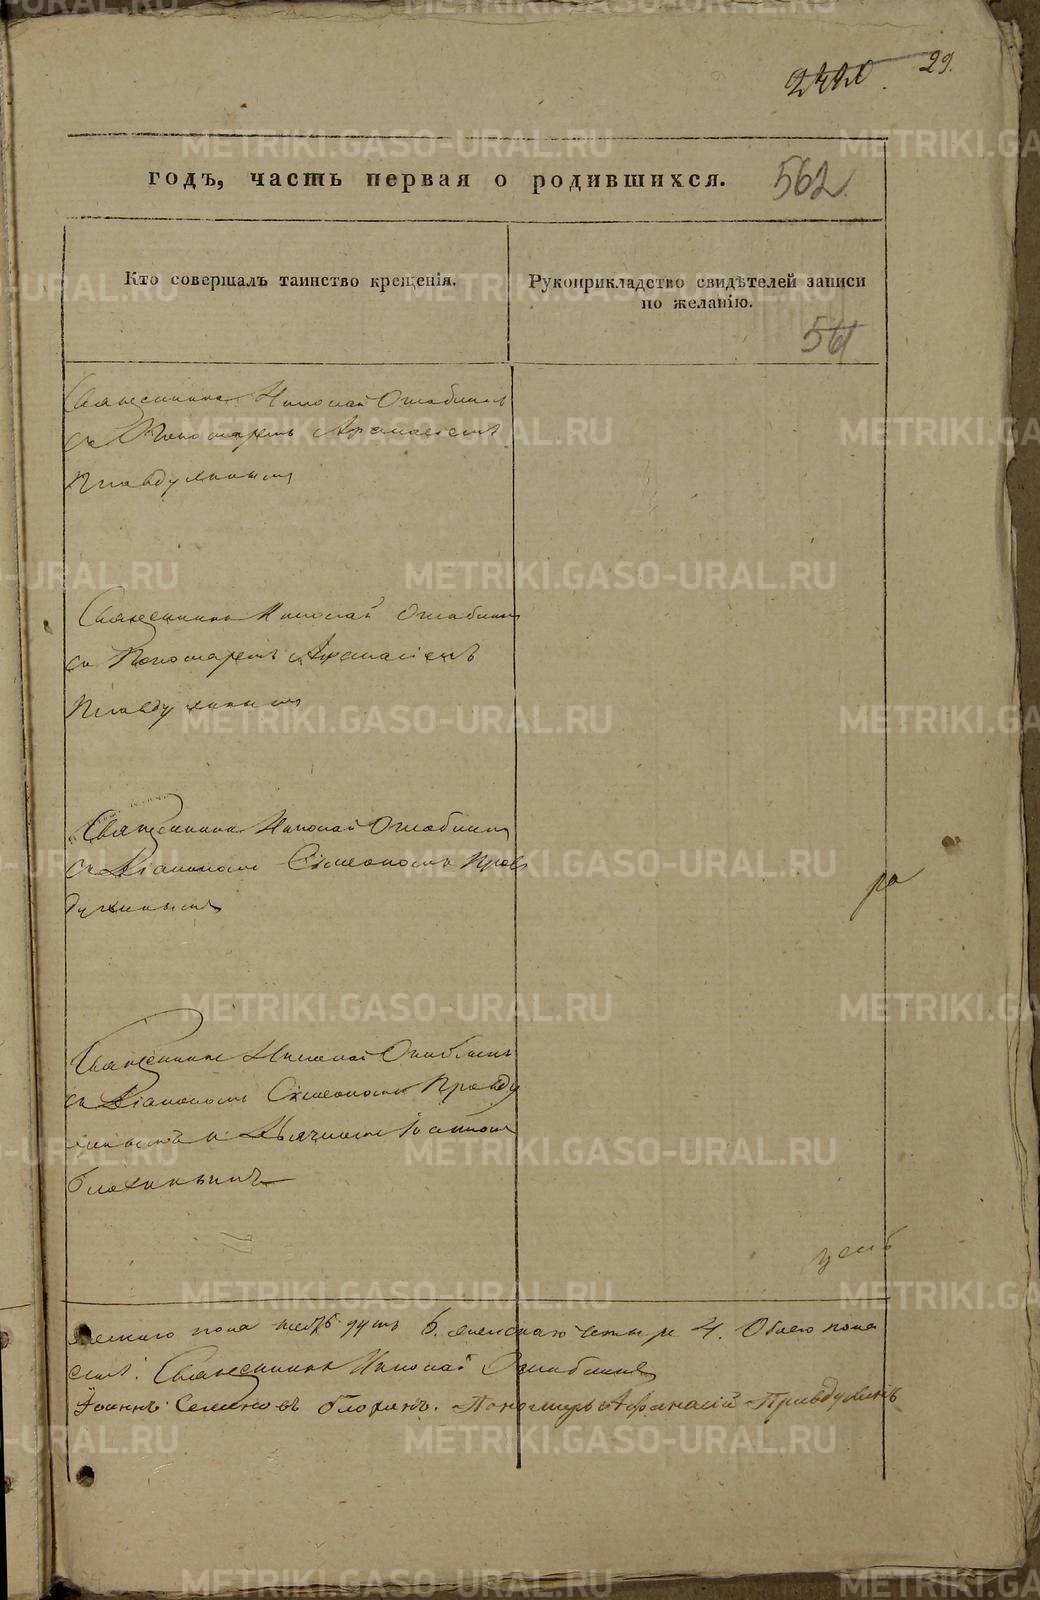 2420 29.
годъ, часть первая о родившихся. 562
Кто совершалъ таинство крещенія.
Рукоприкладство свидѣтелей записи
по желанію.
561
Священникъ Николай
съ Пономаремъ Афанасіемъ
Правдухинымъ
Священникъ Николай
съ Пономаремъ Афанасіемъ
Правдухинымъ
Священникъ Николай
съ Діакономъ Сімеономъ Прав
духинымъ
Священникъ Николай
съ Діакономъ Сімеономъ Правду
хинымъ и Дьячкомъ Іоанномъ
Блохинымъ
ра
пола 6. женскаго четыре 4. Обоего пола
Священникъ Николай
Іоаннъ Семеновъ Блохинъ. Пономарь Афанасій Правдухинъ
METRIKI.GASO-URAL.RU